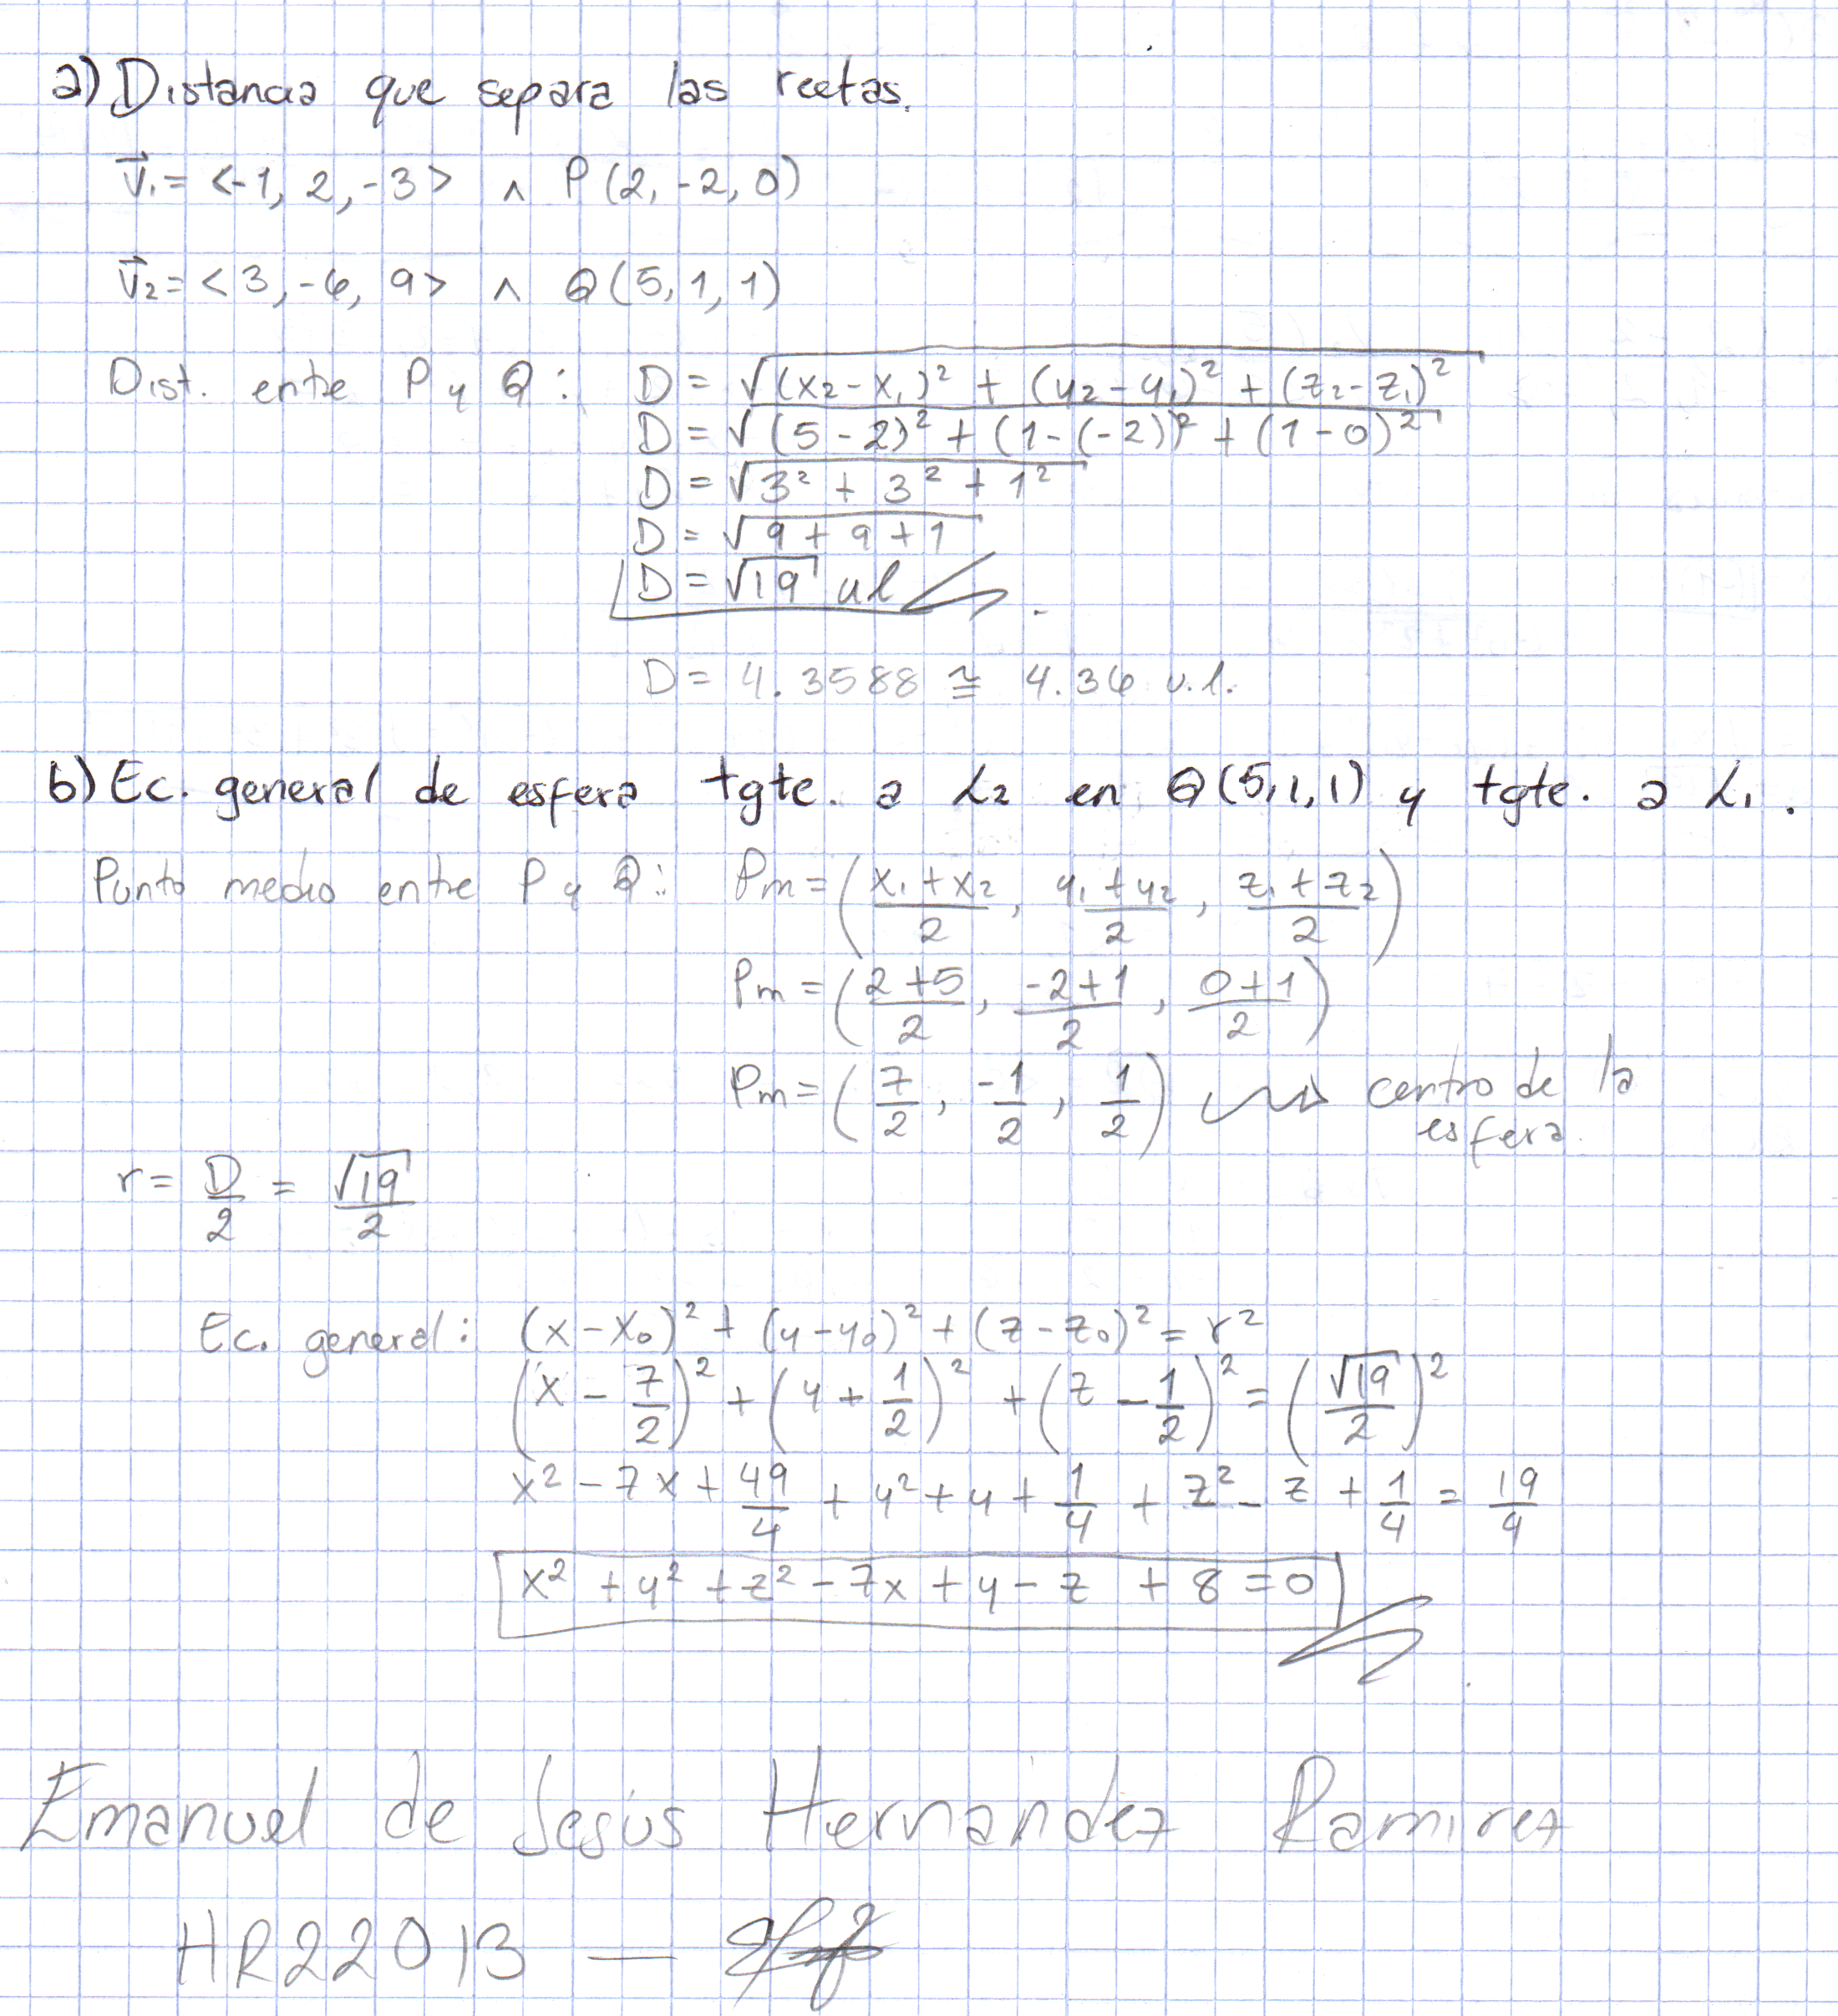 a) Distancia que separa las rectas.
v⃗₁ = <-1, 2, -3> ∧ P(2, -2, 0)
v⃗₂ = <3, -6, 9> ∧ Q(5, 1, 1)
Dist. entre P y Q: D = √((x₂-x₁)² + (y₂-y₁)² + (z₂-z₁)²)
D = √((5-2)² + (1-(-2))² + (1-0)²)
D = √(3² + 3² + 1²)
D = √(9 + 9 + 1)
D = √19 ul
D = 4.3588 ≅ 4.36 u.l.
b) Ec. general de esfera tgte. a L₂ en Q(5,1,1) y tgte. a L₁.
Punto medio entre P y Q: Pm = ((x₁+x₂)/2, (y₁+y₂)/2, (z₁+z₂)/2)
Pm = ((2+5)/2, (-2+1)/2, (0+1)/2)
Pm = (7/2, -1/2, 1/2) → centro de la
esfera.
r = D/2 = √19/2
Ec. general: (x-x₀)² + (y-y₀)² + (z-z₀)² = r²
(x - 7/2)² + (y + 1/2)² + (z - 1/2)² = (√19/2)²
x² - 7x + 49/4 + y² + y + 1/4 + z² - z + 1/4 = 19/4
x² + y² + z² - 7x + y - z + 8 = 0
Emanuel de Jesús Hernández Ramírez
HR22013 —